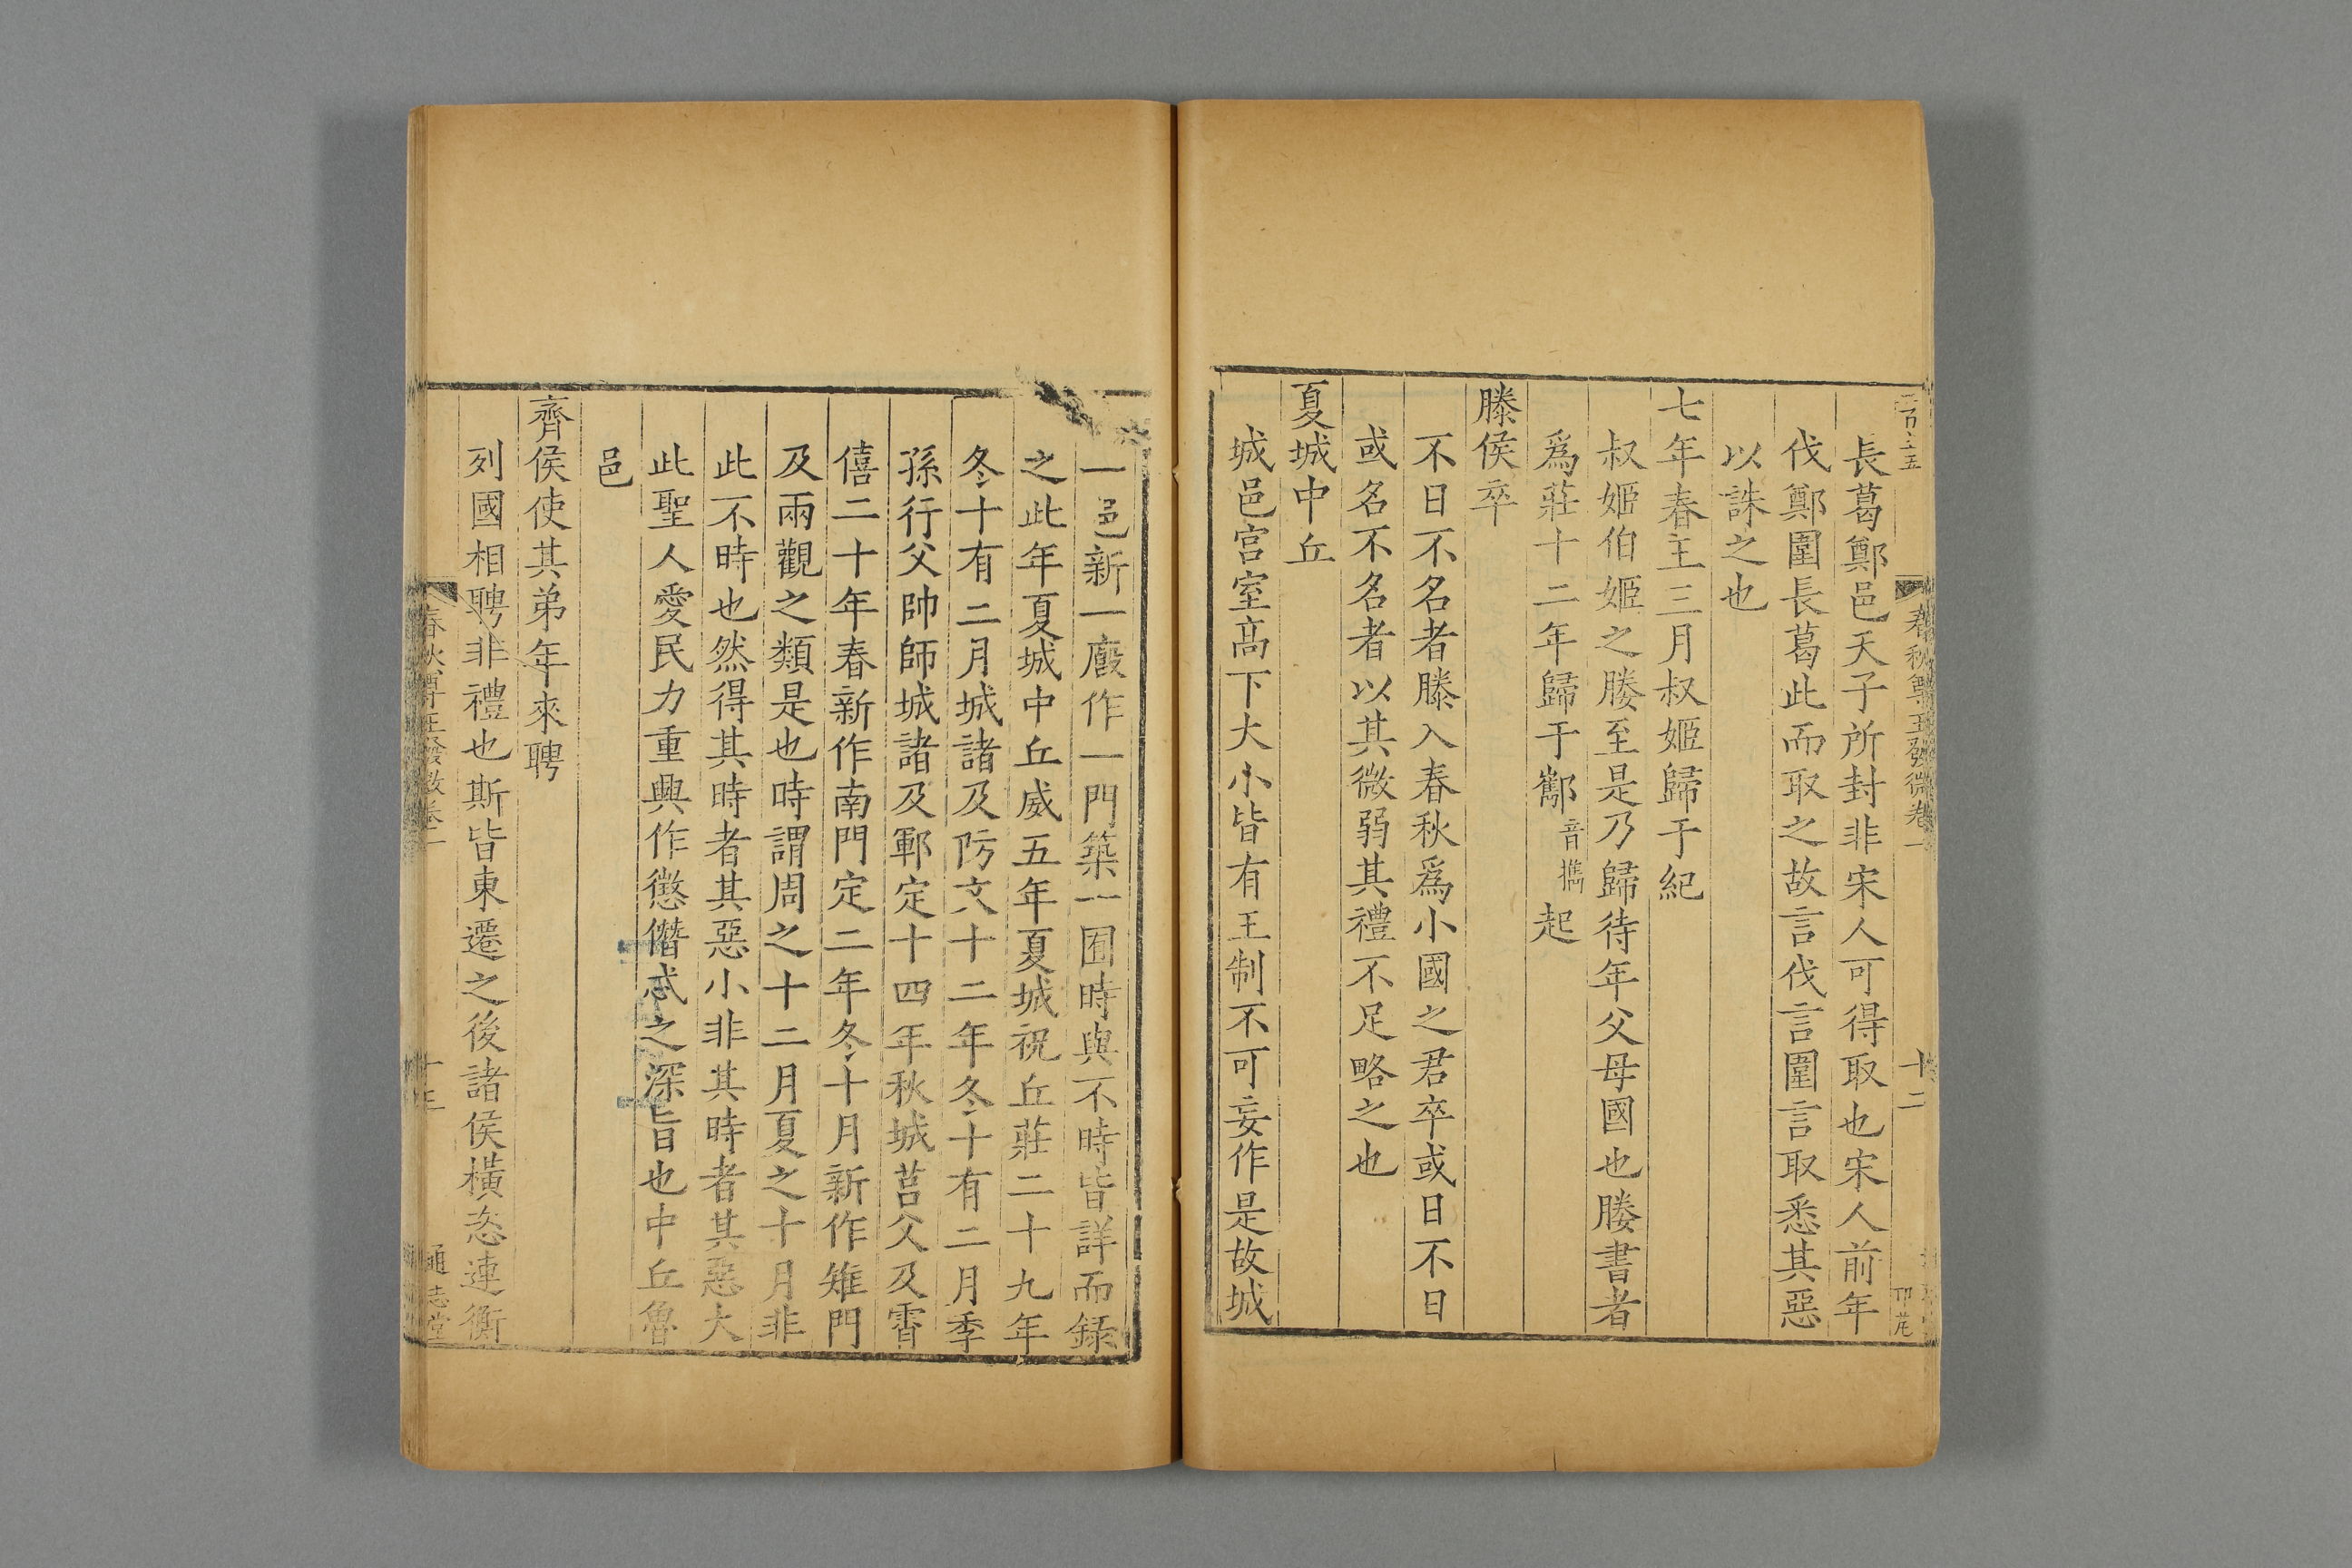 春秋尊王發微卷一
十二
長葛鄭邑天子所封非宋人可得取也宋人前年
伐鄭圍長葛此而取之故言伐言圍言取悉其惡
以誅之也
七年春王三月叔姬歸于紀
叔姬伯姬之媵至是乃歸待年父母國也媵書者
爲莊十二年歸于酅音攜起
滕侯卒
不日不名者滕入春秋爲小國之君卒或日不日
或名不名者以其微弱其禮不足略之也
夏城中丘
城邑宫室高下大小皆有王制不可妄作是故城
一邑新一廏作一門築一囿時與不時皆詳而録
之此年夏城中丘威五年夏城祝丘莊二十九年
冬十有二月城諸及防文十二年冬十有二月季
孫行父帥師城諸及鄆定十四年秋城莒父及霄
僖二十年春新作南門定二年冬十月新作雉門
及兩觀之類是也時謂周之十二月夏之十月非
此不時也然得其時者其惡小非其時者其惡大
此聖人愛民力重興作懲僭忒之深旨也中丘魯
邑
齊侯使其弟年來聘
列國相聘非禮也斯皆東遷之後諸侯橫恣連衡
春秋尊王發微卷一
十三
通志堂